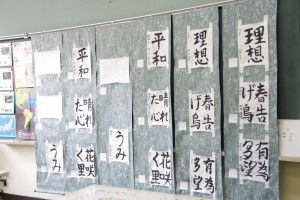 理想
春告
げ鳥
有為
多望
理想
春告
げ鳥
有為
多望
平和
晴れ
た心
花咲
く里
うみ
平和
晴れ
た心
花咲
く里
うみ